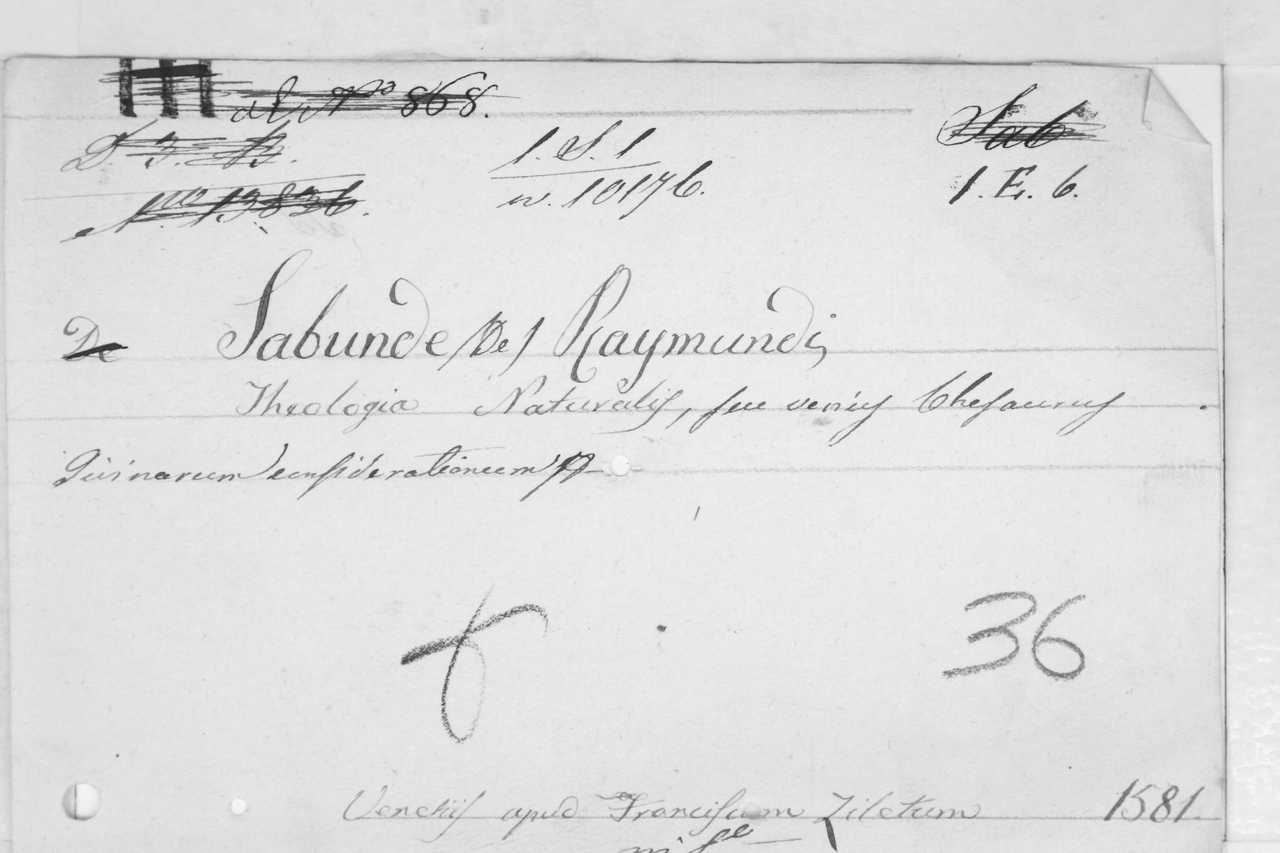 ad Nro 868.
Sab
D. 3. B.
1. S. 1
Nro 13826.
n. 10176.
1. E. 6.
De Sabunde /De/ Raymundi
Theologia Naturalis, seu verius Thesaurus
Divinarum considerationum
36
Venetiis apud Franciscum Ziletum 1581.